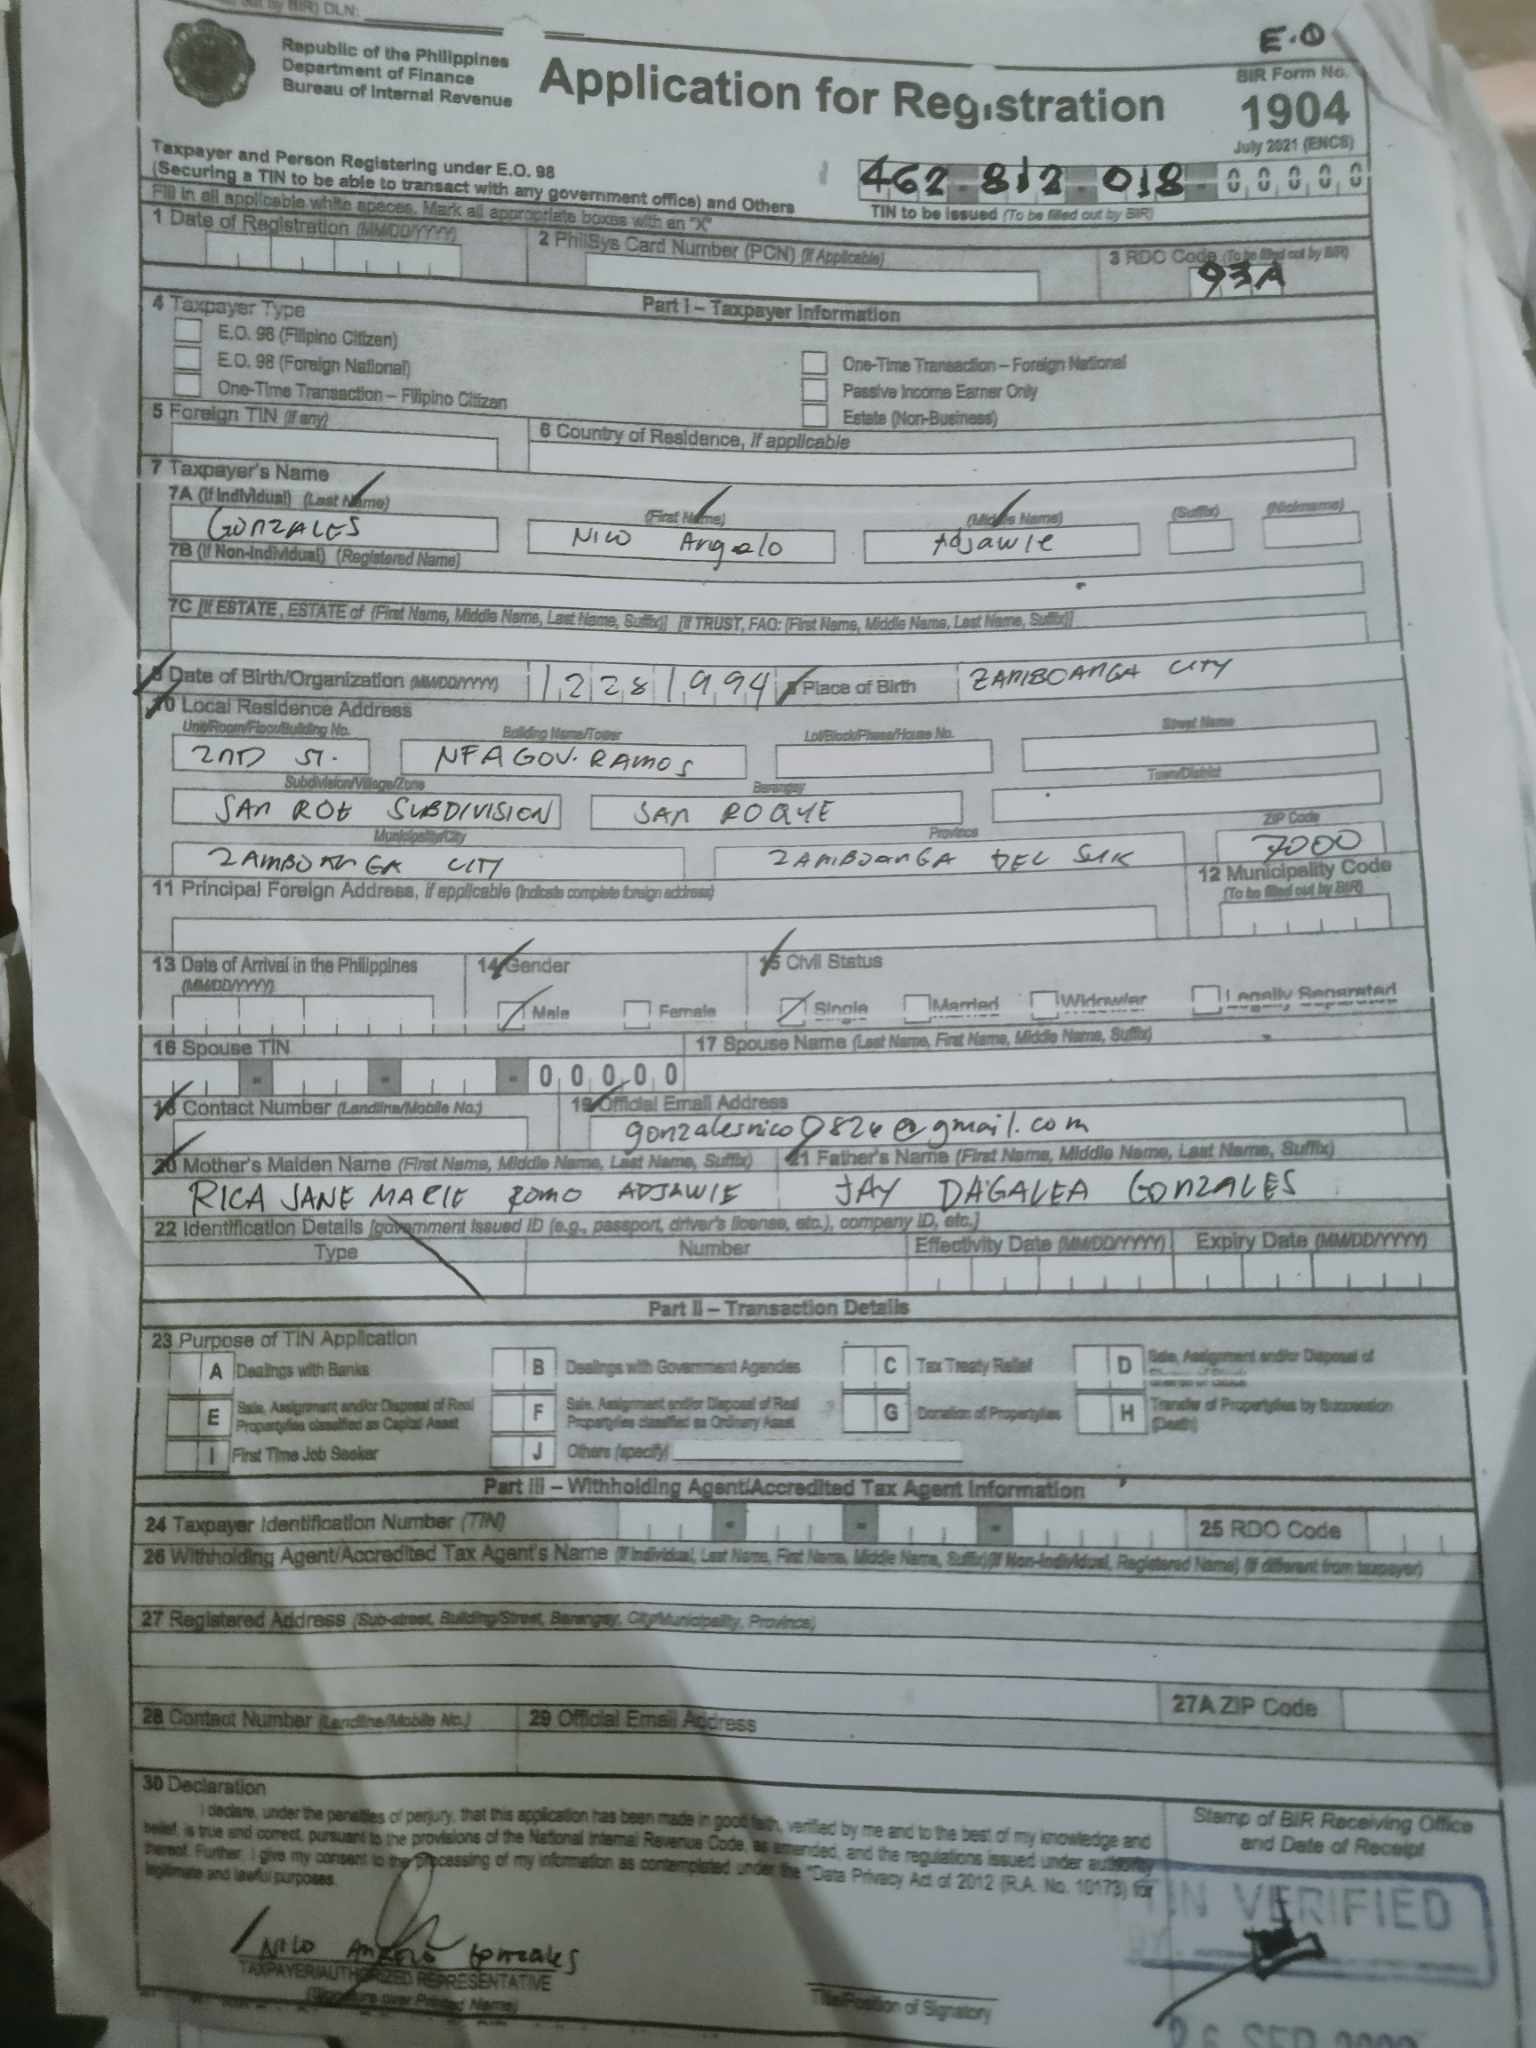 out by BIR) DLN:
E.O
Republic of the Philippines
Department of Finance
Bureau of Internal Revenue
Application for Registration
BIR Form No.
1904
July 2021 (ENCS)
Taxpayer and Person Registering under E.O. 98
(Securing a TIN to be able to transact with any government office) and Others
462-812-018-00000
TIN to be issued (To be filled out by BIR)
Fill in all applicable white spaces. Mark all appropriate boxes with an "X"
1 Date of Registration (MM/DD/YYYY)
2 PhilSys Card Number (PCN) (If Applicable)
3 RDO Code (To be filled out by BIR)
93A
Part I – Taxpayer Information
4 Taxpayer Type
E.O. 98 (Filipino Citizen)
E.O. 98 (Foreign National)
One-Time Transaction – Filipino Citizen
One-Time Transaction – Foreign National
Passive Income Earner Only
Estate (Non-Business)
5 Foreign TIN (if any)
6 Country of Residence, if applicable
7 Taxpayer's Name
7A (If Individual) (Last Name) (First Name) (Middle Name) (Suffix) (Nickname)
GONZALES Nico Angelo Adjawie
7B (If Non-Individual) (Registered Name)
7C [If ESTATE, ESTATE of (First Name, Middle Name, Last Name, Suffix)] [If TRUST, FAO: (First Name, Middle Name, Last Name, Suffix)]
8 Date of Birth/Organization (MM/DD/YYYY) 12281994 Place of Birth ZAMBOANGA CITY
10 Local Residence Address
Unit/Room/Floor/Building No. Building Name/Tower Lot/Block/Phase/House No. Street Name
2ND ST. NFA GOV. RAMOS
Subdivision/Village/Zone Barangay Town/District
SAN ROE SUBDIVISION SAN ROQUE
Municipality/City Province ZIP Code
ZAMBOANGA CITY ZAMBOANGA DEL SUR 7000
11 Principal Foreign Address, if applicable (Indicate complete foreign address)
12 Municipality Code
(To be filled out by BIR)
13 Date of Arrival in the Philippines
(MM/DD/YYYY)
14 Gender
Male Female
15 Civil Status
Single Married Widow/er Legally Separated
16 Spouse TIN
00000
17 Spouse Name (Last Name, First Name, Middle Name, Suffix)
18 Contact Number (Landline/Mobile No.)
19 Official Email Address
gonzalesnico0826@gmail.com
20 Mother's Maiden Name (First Name, Middle Name, Last Name, Suffix)
RICA JANE MARIE ROMO ADJAWIE
21 Father's Name (First Name, Middle Name, Last Name, Suffix)
JAY DAGALEA GONZALES
22 Identification Details [government issued ID (e.g., passport, driver's license, etc.), company ID, etc.]
Type Number Effectivity Date (MM/DD/YYYY) Expiry Date (MM/DD/YYYY)
Part II – Transaction Details
23 Purpose of TIN Application
A Dealings with Banks
B Dealings with Government Agencies
C Tax Treaty Relief
D Sale, Assignment and/or Disposal of
E Sale, Assignment and/or Disposal of Real
Property/ies classified as Capital Asset
F Sale, Assignment and/or Disposal of Real
Property/ies classified as Ordinary Asset
G Donation of Property/ies
H Transfer of Property/ies by Succession
(Death)
I First Time Job Seeker
J Others (specify)
Part III – Withholding Agent/Accredited Tax Agent Information
24 Taxpayer Identification Number (TIN)
25 RDO Code
26 Withholding Agent/Accredited Tax Agent's Name (If Individual, Last Name, First Name, Middle Name, Suffix)(If Non-Individual, Registered Name) (If different from taxpayer)
27 Registered Address (Sub-street, Building/Street, Barangay, City/Municipality, Province)
27A ZIP Code
28 Contact Number (Landline/Mobile No.)
29 Official Email Address
30 Declaration
I declare, under the penalties of perjury, that this application has been made in good faith, verified by me and to the best of my knowledge and
belief, is true and correct, pursuant to the provisions of the National Internal Revenue Code, as amended, and the regulations issued under authority
thereof. Further, I give my consent to the processing of my information as contemplated under the "Data Privacy Act of 2012 (R.A. No. 10173) for
legitimate and lawful purposes.
Stamp of BIR Receiving Office
and Date of Receipt
TIN VERIFIED
BY:
NICO ANGELO Gonzales
TAXPAYER/AUTHORIZED REPRESENTATIVE
(Signature over Printed Name)
Title/Position of Signatory
26 SEP